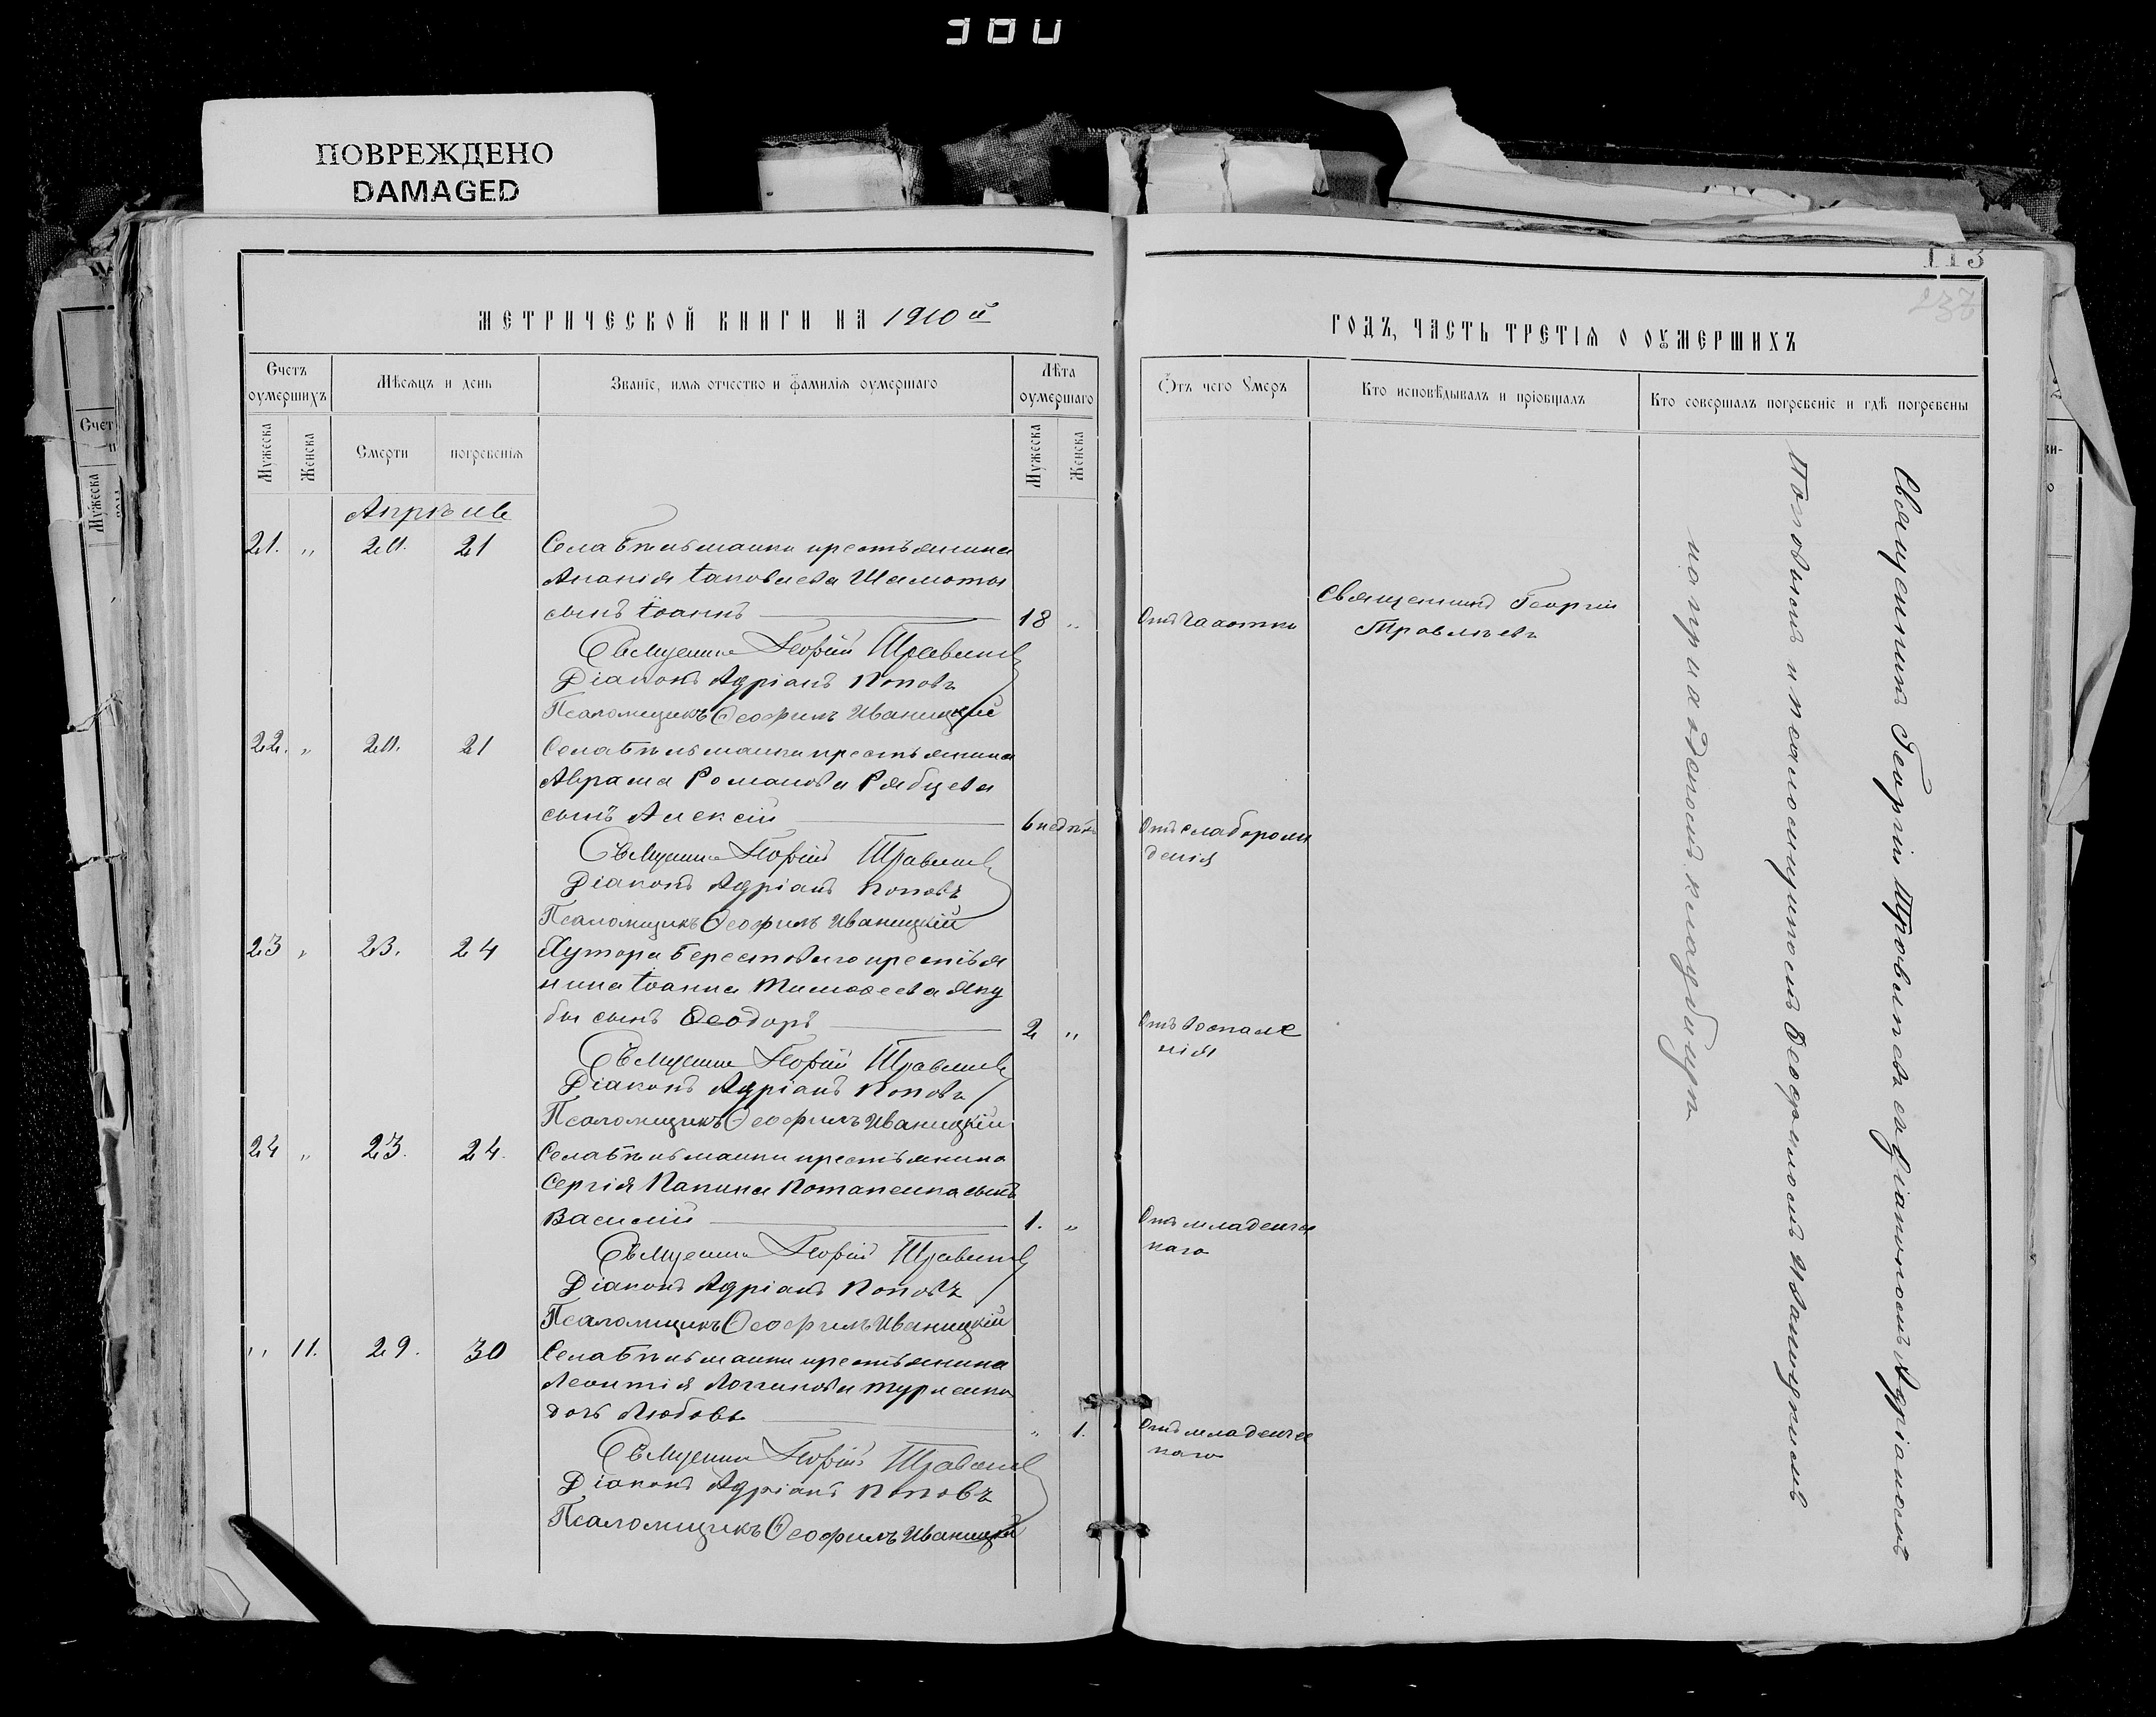 380
ПОВРЕЖДЕНО
DAMAGED
МЕТРИЧЕСКОЙ КНИГИ НА 1910й
Счетъ оумершихъ
Мѣсяцъ и день
Званіе, имя отчество и фамилія оумершаго
Лѣта оумершаго
Мужеска
Женска
Смерти
погребенія
Мужеска
Женска
Апрѣль
21. " 20. 21 Села Бѣльманки крестьянина
Ананія Іаковлева Шамоты
сынъ Іоаннъ 18 "
Священникъ Георгій Травлѣевъ
Діаконъ Адріанъ Поповъ
Псаломщикъ Ѳеофилъ Иваницкій
22. " 20. 21 Села Бѣльманки крестьянина
Аврама Романова Рябцева
сынъ Алексій 6 недѣль
Священникъ Георгій Травлѣевъ
Діаконъ Адріанъ Поповъ
Псаломщикъ Ѳеофилъ Иваницкій
23 " 23. 24 Хутора Берестового крестья
нина Іоанна Тимоѳеева Яку
бы сынъ Ѳеодоръ 2 "
Священникъ Георгій Травлѣевъ
Діаконъ Адріанъ Поповъ
Псаломщикъ Ѳеофилъ Иваницкій
24 " 23. 24. Села Бѣльманки крестьянина
Сергія Потапенка сынъ
Василій 1. "
Священникъ Георгій Травлѣевъ
Діаконъ Адріанъ Поповъ
Псаломщикъ Ѳеофилъ Иваницкій
" 11. 29. 30 Села Бѣльманки крестьянина
Леонтія Логинова
дочь Любовь " 1.
Священникъ Георгій Травлѣевъ
Діаконъ Адріанъ Поповъ
Псаломщикъ Ѳеофилъ Иваницкій
113
237
ГОДЪ, ЧАСТЬ ТРЕТІЯ О ОУМЕРШИХЪ
Отъ чего Умеръ
Кто исповѣдывалъ и пріобщалъ
Кто совершалъ погребеніе и гдѣ погребены
Отъ чахотки
Священникъ Георгій
Травлѣевъ
Отъ слаборож
денія
Отъ воспале
нія
Отъ младенчес
каго
Отъ младенчес
каго
Священникъ Георгій Травлѣевъ съ діакономъ Адріаномъ
Поповымъ и псаломщикомъ Ѳеофиломъ Иваницкимъ
на приходскомъ кладбищѣ
Счет
Мужеска